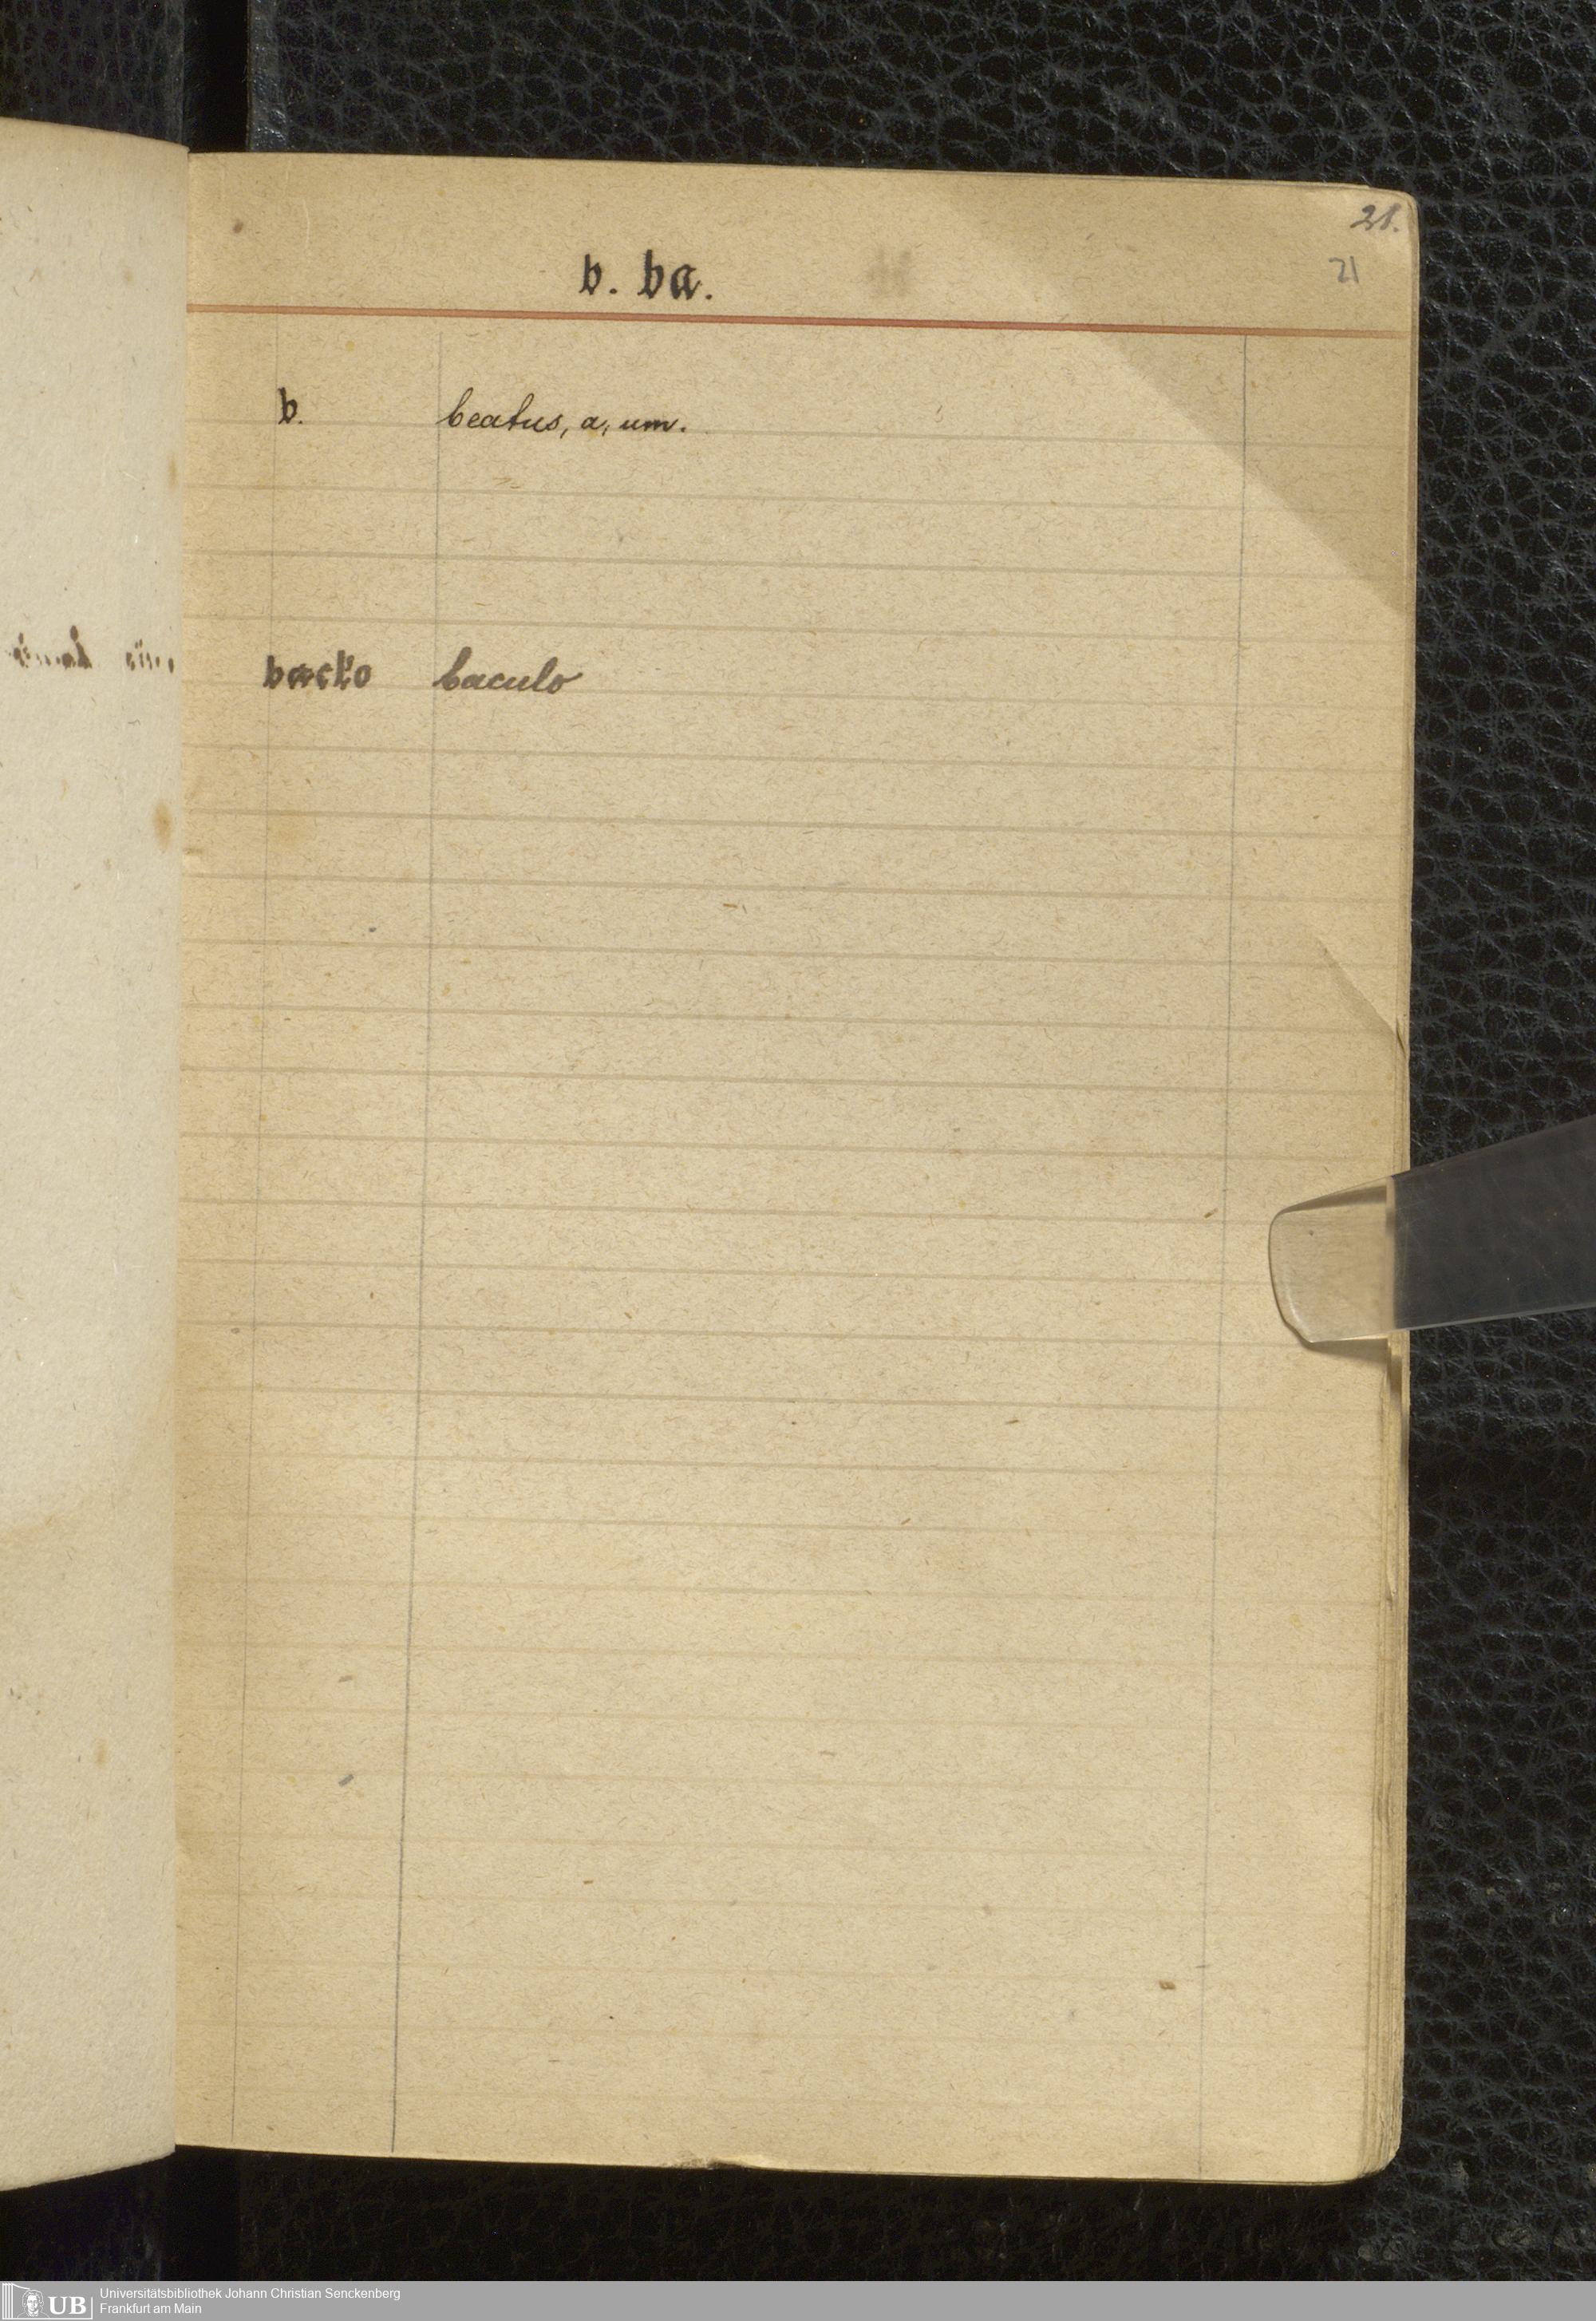 21.
21
b. ba.
b. beatus, a, um.
baculo
UB Universitätsbibliothek Johann Christian Senckenberg
Frankfurt am Main